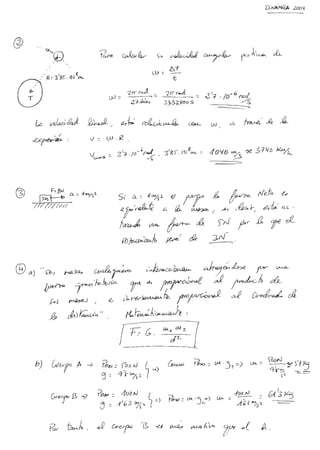 DINÁMICA 2004
②
Para calcular su velocidad angular partimos de
R = 3'85·10⁸ m
ω = Δφ / t
T
ω = 2π rad / 27 días = 2π rad / 2332800 s = 2'7·10⁻⁶ rad/s
La velocidad lineal, está relacionada con ω a través de la
expresión: v = ω·R
2'7·10⁻⁶ rad/s · 3'85·10⁸ m = 1040 m/s ≈ 3740 km/h
③
F = 8N a = 1 m/s²
5 kg
Si a = 1 m/s² es porque la fuerza neta es
equivalente a la masa, es decir, está ac-
tuando una fuerza de 5N por lo que el
rozamiento será de 3N
④ a) "Dos masas cualesquiera interaccionan atrayéndose por una
fuerza gravitatoria que es proporcional al producto de
las masas, e inversamente proporcional al cuadrado de
la distancia". Matemáticamente:
F = G · m₁ m₂ / d²
b) Cuerpo A → Peso = 500 N
g = 9'8 m/s²
Como Peso = m·g → m = 500N / 9'8 m/s² ≈ 51 kg
Cuerpo B → Peso = 100 N
g = 1'63 m/s²
Peso = m·g → m = 100N / 1'63 m/s² = 61'3 kg
Por tanto, el cuerpo B es más masivo que el A.